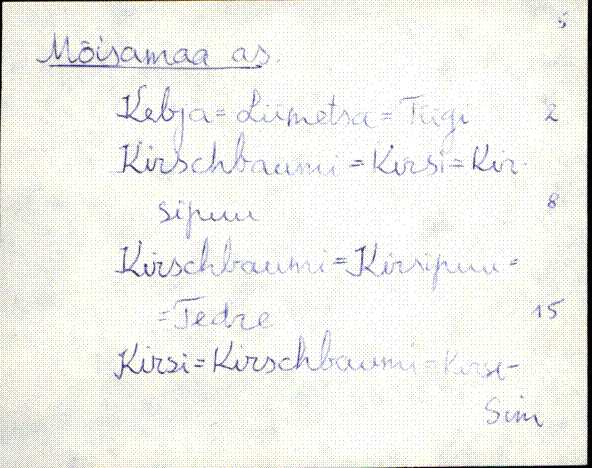 5
Mõisamaa as.
Kebja = Liimetsa = Tiigi 2
Kirschbaumi = Kirsi = Kir-
sipuu 8
Kirschbaumi = Kirsipuu =
= Tedre 15
Kirsi = Kirschbaumi =
Sim